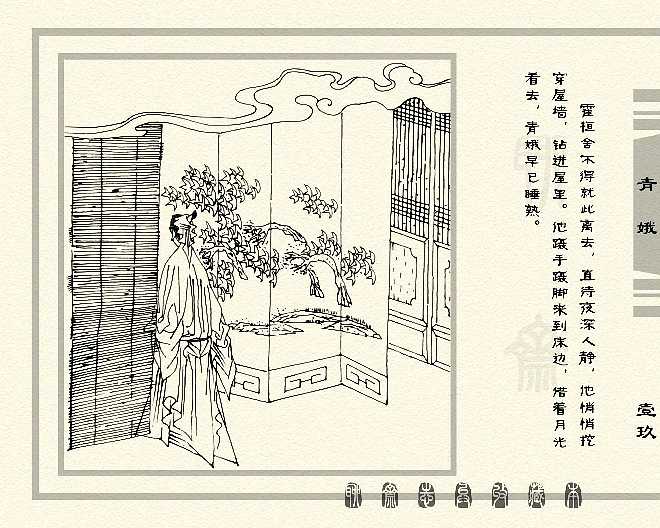 霍桓舍不得就此离去，直待夜深人静，他悄悄挖
穿屋墙，钻进屋里。他蹑手蹑脚来到床边，借着月光
看去，青娥早已睡熟。
青娥
壹玖
聊斋志异收藏本